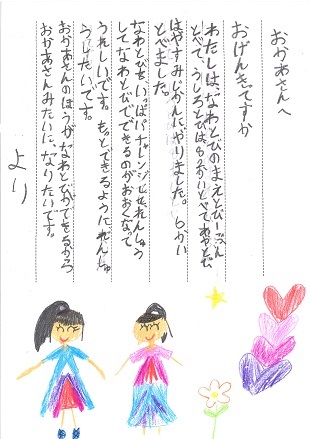 おかあさんへ
おげんきですか
わたしは、なわとびのまえとび
とべて、うしろとびは
はやすみじかんにやりました。6かい
とべました。
なわとびを、いっぱいチャレンジし、れんしゅう
してなわとびでできるのがおおくなって
うれしいです。もっとできるように、れんしゅ
うしたいです。
おかあさんのほうがなわとびができるから
おかあさんみたいに、なりたいです。
より